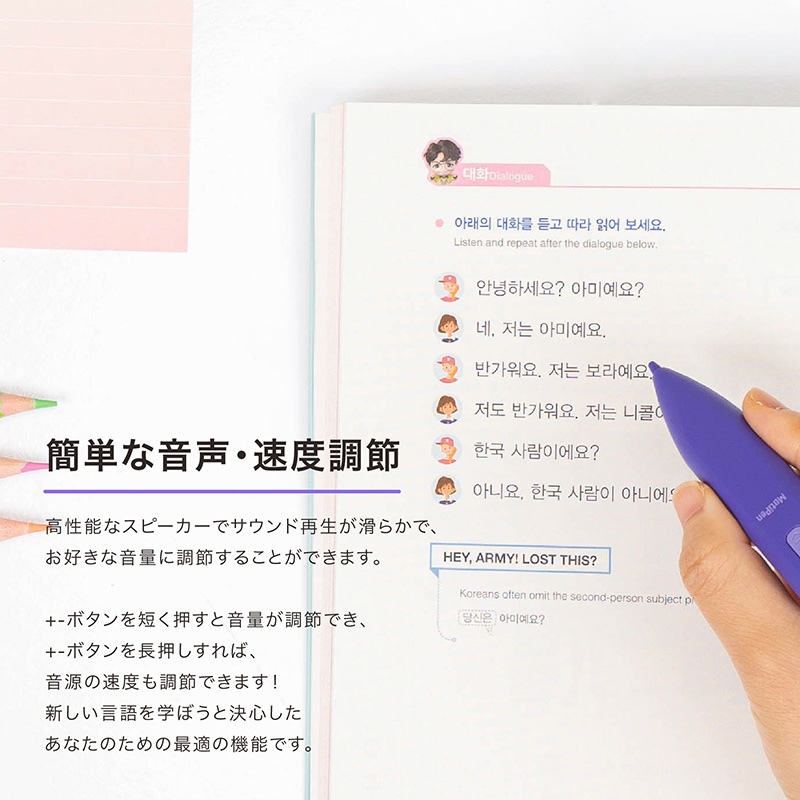 대화Dialogue
아래의 대화를 듣고 따라 읽어 보세요.
Listen and repeat after the dialogue below.
안녕하세요? 아미예요?
네, 저는 아미예요.
반가워요. 저는 보라예요.
저도 반가워요. 저는 니콜
한국 사람이에요?
아니요, 한국 사람이 아니에요
HEY, ARMY! LOST THIS?
Koreans often omit the second-person subject
당신은 아미예요?
MotiPen
簡単な音声・速度調節
高性能なスピーカーでサウンド再生が滑らかで、
お好きな音量に調節することができます。
+-ボタンを短く押すと音量が調節でき、
+-ボタンを長押しすれば、
音源の速度も調節できます！
新しい言語を学ぼうと決心した
あなたのための最適の機能です。